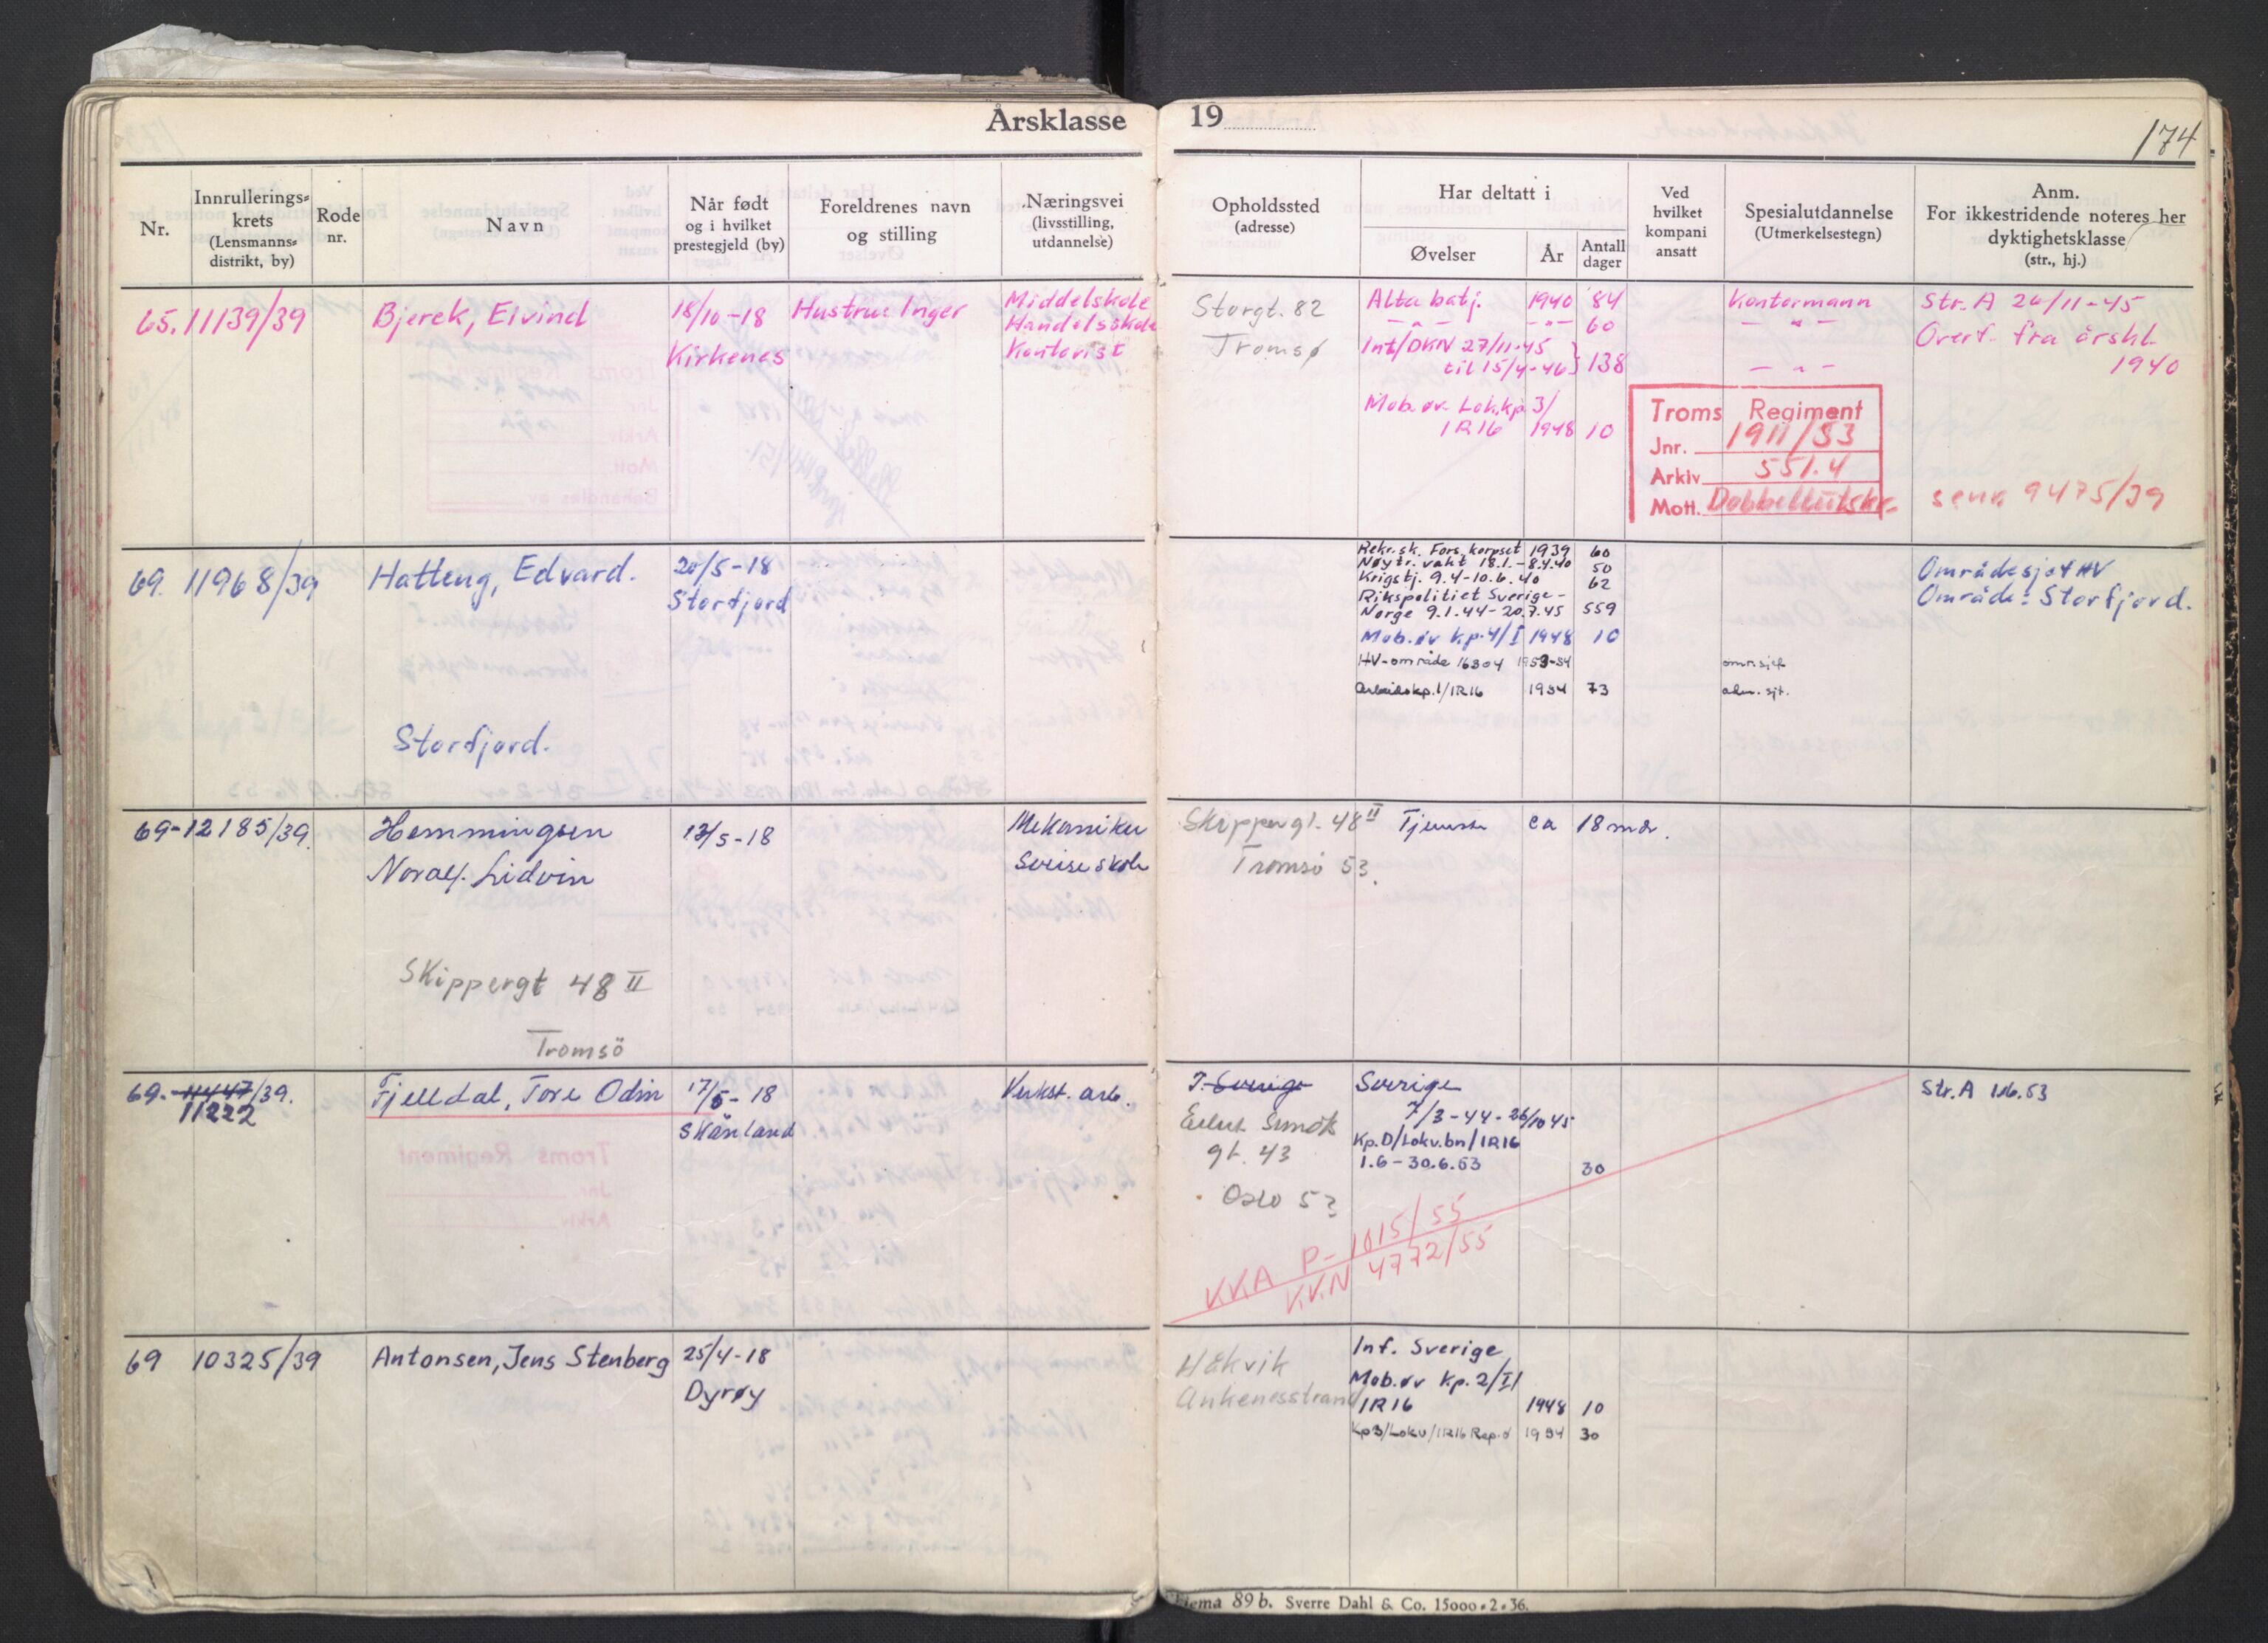 Årsklasse 19
174
Nr.
Innrullerings-
krets
(Lensmanns-
distrikt, by)
Rode
nr.
Navn
Når født
og i hvilket
prestegjeld (by)
Foreldrenes navn
og stilling
Næringsvei
(livsstilling,
utdannelse)
Opholdssted
(adresse)
Har deltatt i
Øvelser
År
Antall
dager
Ved
hvilket
kompani
ansatt
Spesialutdannelse
(Utmerkelsestegn)
Anm.
For ikkestridende noteres her
dyktighetsklasse
(str., hj.)
65. 11139/39
Bjerek, Eivind
18/10-18
Kirkenes
Hustru: Inger
Middelskole
Handelsskole
Kontorist
Storgt. 82
Tromsø
Alta batj. 1940 84
— " — — " — 60
Int/DKN 27/11-45
til 15/4-46 } 138
Mob. øv. Lok.kp. 3/
IR16 1948 10
Kontormann
— " —
— " —
Str. A 26/11-45
Overf. fra årskl.
1940
Troms Regiment
Jnr. 1911/53
Arkiv 551.4
Mott. Dobbeltutskr.
senr. 9475/39
69. 11968/39
Hatteng, Edvard.
Storfjord.
20/5-18
Storfjord
Rekr.sk. Fors. korpset 1939 60
Nøytr. vakt 18.1.-8.4.40 50
Krigstj. 9.4-10.6.40 62
Rikspolitiet Sverige-
Norge 9.1.44-20.7.45 559
Mob. øv Kp. 4/I 1948 10
HV-område 16304 1953-54
Arbeidskp. 1/IR16 1954 73
omr.sjef
adm. sjt.
Områdesjef HV
Område: Storfjord.
69-12185/39.
Hemmingsen
Noralf Lidvin
Skippergt 48 II
Tromsö
13/5-18
Mekaniker
Sveiseskole
Skippergt. 48 II
Tromsö 53.
Tjeneste ca 18 mdr.
69.-11447/39.
11222
Fjelldal, Tore Odin
17/5-18
Skånland
Verkst. arb.
I. Sverige
Eilert Sundts
gt. 43
Oslo 53
Sverige
7/3-44-26/10 45
Kp. D/Lokv.bn/IR16
1.6-30.6.53 30
KKA P-1015/55
KKN 4772/55
Str. A 1/6.53
69 10325/39
Antonsen, Jens Stenberg
25/4-18
Dyrøy
Håkvik
Ankenesstrand
Inf. Sverige
Mob. øv Kp. 2/II
IR16 1948 10
Kp3/Lokv/IR16 Rep.ø 1954 30
Skjema 89 b. Sverre Dahl & Co. 15000-2-36.